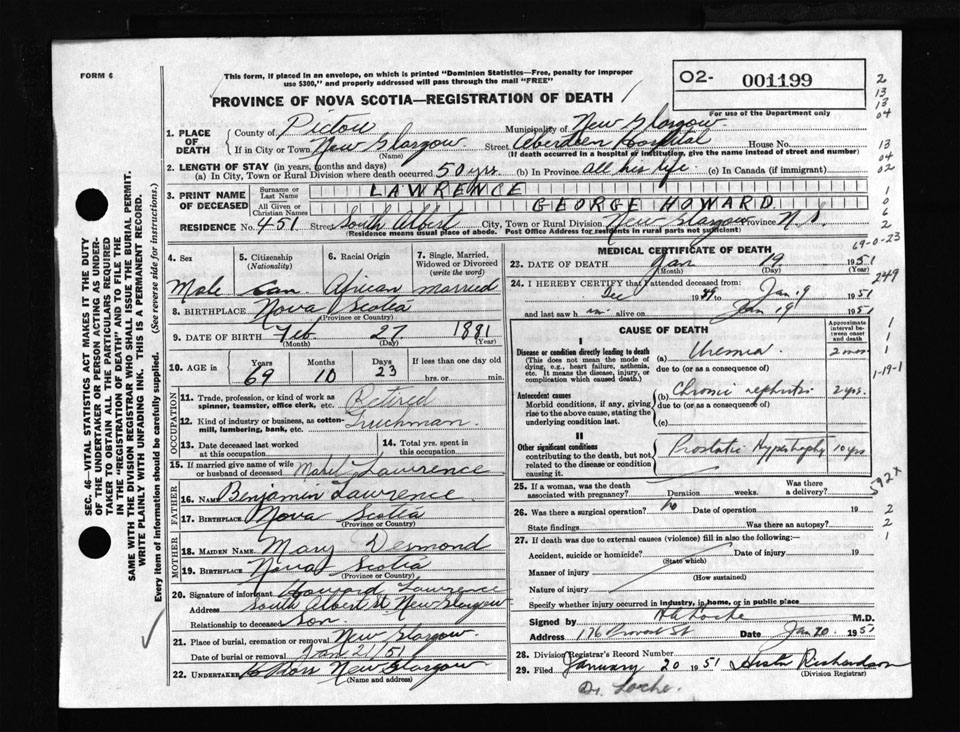 FORM 6
This form, if placed in an envelope, on which is printed "Dominion Statistics—Free, penalty for improper
use $300," and properly addressed will pass through the mail "FREE"
O2- 001199
For use of the Department only
PROVINCE OF NOVA SCOTIA—REGISTRATION OF DEATH
1. PLACE OF DEATH
County of Pictou Municipality of New Glasgow
If in City or Town New Glasgow Street Aberdeen Hospital House No.
(Name) (If death occurred in a hospital or institution, give the name instead of street and number)
2. LENGTH OF STAY (in years, months and days)
(a) In City, Town or Rural Division where death occurred 50 yrs. (b) In Province all his life (c) In Canada (if immigrant)
3. PRINT NAME OF DECEASED
Surname or Last Name LAWRENCE
All Given or Christian Names GEORGE HOWARD
RESIDENCE No. 451 Street South Albert City, Town or Rural Division New Glasgow Province N.S.
(Residence means usual place of abode. Post Office Address for residents in rural parts not sufficient)
4. Sex 5. Citizenship (Nationality) 6. Racial Origin 7. Single, Married, Widowed or Divorced (write the word)
Male Can. African married
8. BIRTHPLACE Nova Scotia
(Province or Country)
9. DATE OF BIRTH Feb 27 1881
(Month) (Day) (Year)
10. AGE Years Months Days If less than one day old
69 10 23 hrs. or min.
OCCUPATION
11. Trade, profession, or kind of work as spinner, teamster, office clerk, etc. Retired
12. Kind of industry or business, as cotten-mill, lumbering, bank, etc. Truckman.
13. Date deceased last worked at this occupation 14. Total yrs. spent in this occupation
15. If married give name of wife or husband of deceased Mabel Lawrence
FATHER
16. NAME Benjamin Lawrence.
17. BIRTHPLACE Nova Scotia
(Province or Country)
MOTHER
18. MAIDEN NAME Mary Desmond
19. BIRTHPLACE Nova Scotia
(Province or Country)
20. Signature of informant Howard Lawrence
Address South Albert St. New Glasgow
Relationship to deceased Son.
21. Place of burial, cremation or removal New Glasgow.
Date of burial or removal Jan 21/51
22. UNDERTAKER New Glasgow
(Name and address)
MEDICAL CERTIFICATE OF DEATH
23. DATE OF DEATH Jan 19 1951
(Month) (Day) (Year)
24. I HEREBY CERTIFY that I attended deceased from:
Dec 1949 to Jan. 9 1951
and last saw him alive on Jan 19 1951
CAUSE OF DEATH
Approximate interval between onset and death
I
Disease or condition directly leading to death (a) Uremia. 2 mos.
(This does not mean the mode of dying, e.g., heart failure, asthenia, etc. It means the disease, injury, or complication which caused death.)
due to (or as a consequence of)
Antecedent causes (b) Chronic nephritis 2 yrs.
Morbid conditions, if any, giving rise to the above cause, stating the underlying condition last.
due to (or as a consequence of)
(c)
II
Other significant conditions Prostatic Hypertrophy 10 yrs.
contributing to the death, but not related to the disease or condition causing it.
25. If a woman, was the death associated with pregnancy? Duration weeks. Was there a delivery?
26. Was there a surgical operation? No Date of operation 19
State findings Was there an autopsy?
27. If death was due to external causes (violence) fill in also the following:—
Accident, suicide or homicide? Date of injury 19
(State which)
Manner of injury
(How sustained)
Nature of injury
Specify whether injury occurred in industry, in home, or in public place
Signed by M.D.
Address 176 Provost St Date Jan 20. 1951
28. Division Registrar's Record Number
29. Filed January 20 1951 Richardson
(Division Registrar)
Dr. Locke.
SEC. 46—VITAL STATISTICS ACT MAKES IT THE DUTY
OF THE UNDERTAKER OR PERSON ACTING AS UNDER-
TAKER TO OBTAIN ALL THE PARTICULARS REQUIRED
IN THE "REGISTRATION OF DEATH" AND TO FILE THE
SAME WITH THE DIVISION REGISTRAR WHO SHALL ISSUE THE BURIAL PERMIT.
WRITE PLAINLY WITH UNFADING INK. THIS IS A PERMANENT RECORD.
Every item of information should be carefully supplied. (See reverse side for instructions.)
2
13
13
04
13
04
02
1
0
6
2
69-0-23
249
1
1
1
1-19-1
592X
2
2
1